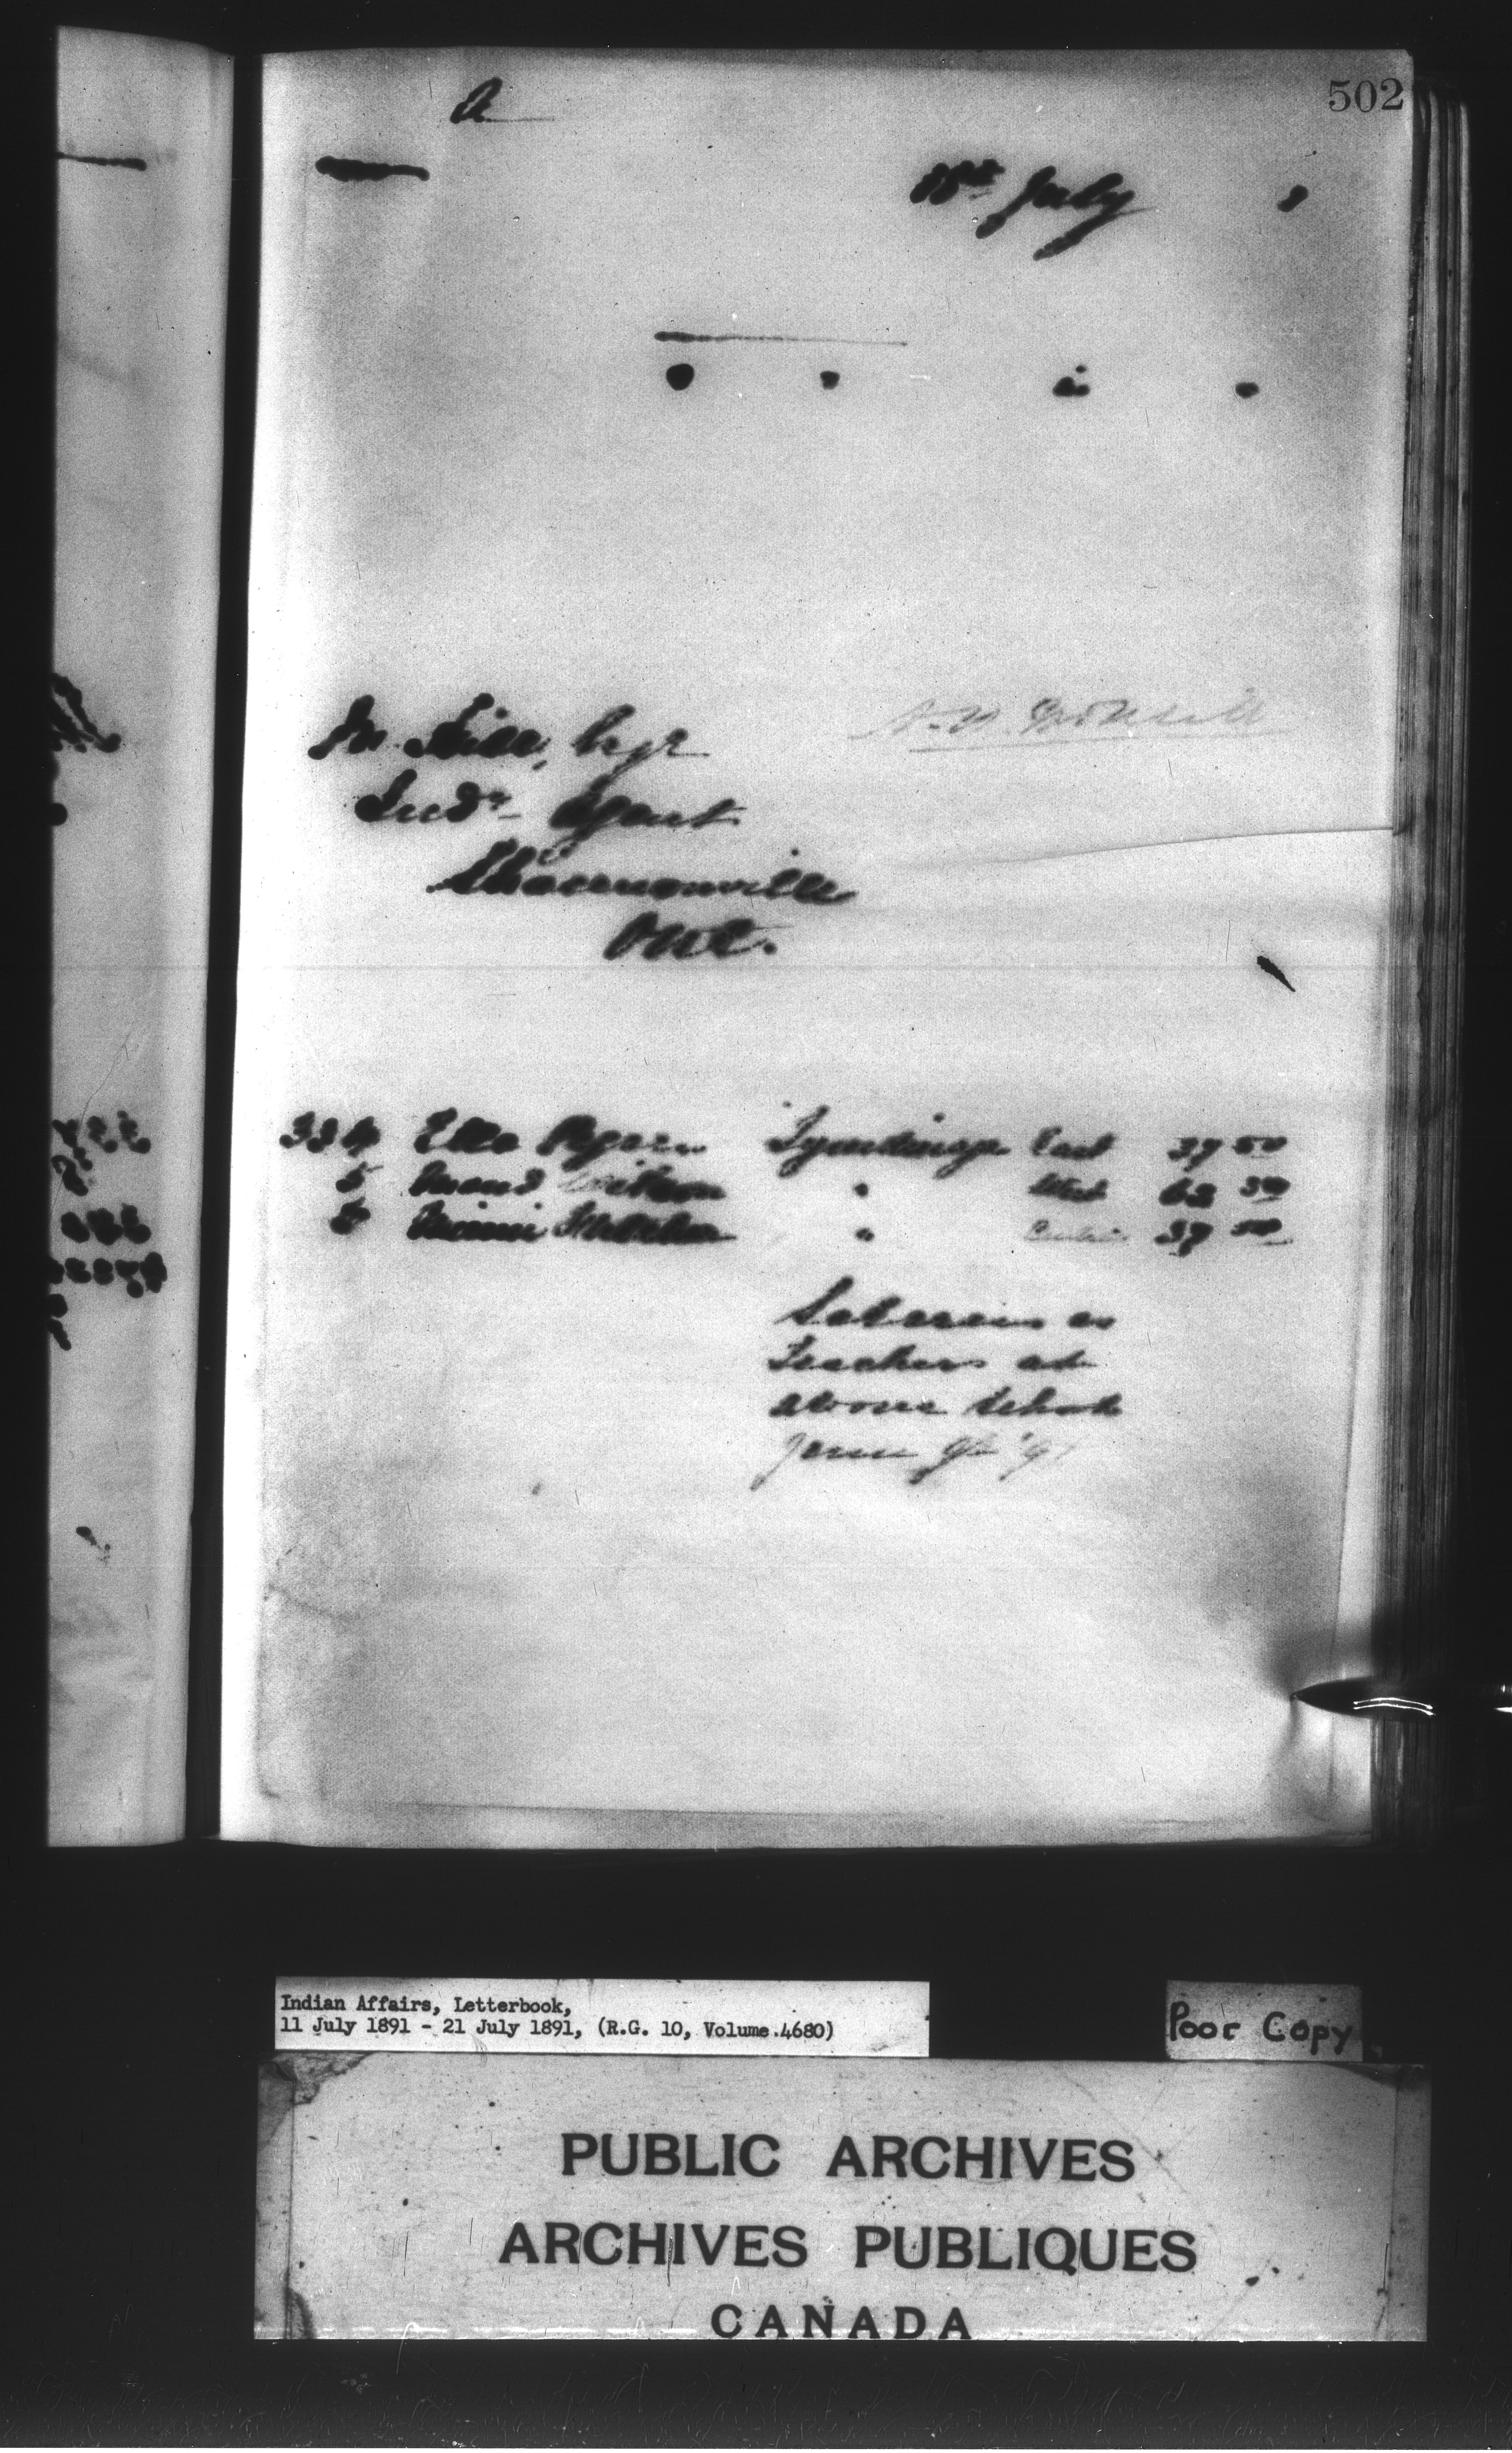 502
A
18th July
M. Hill, Esqr
Indn. Agent
Shannonville
Ont.
334 Ella Tyendinaga East 37 50
5 Maud " West 62 50
6 Minnie " Central 37 50
Salaries as
Teachers at
above schools
June Qr '91
Indian Affairs, Letterbook,
11 July 1891 - 21 July 1891, (R.G. 10, Volume 4680)
Poor Copy
PUBLIC ARCHIVES
ARCHIVES PUBLIQUES
CANADA